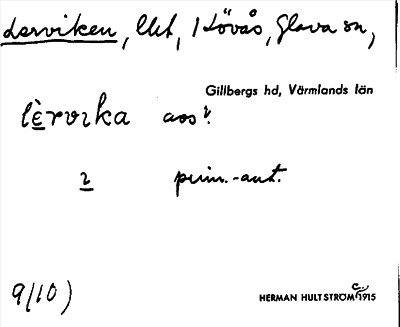 Lerviken, lht, 1 Hövås, Glava sn,
Gillbergs hd, Värmlands län
lèrvıka aos?.
ı prim.-ant.
9/10)
HERMAN HULTSTRÖM C. 1915